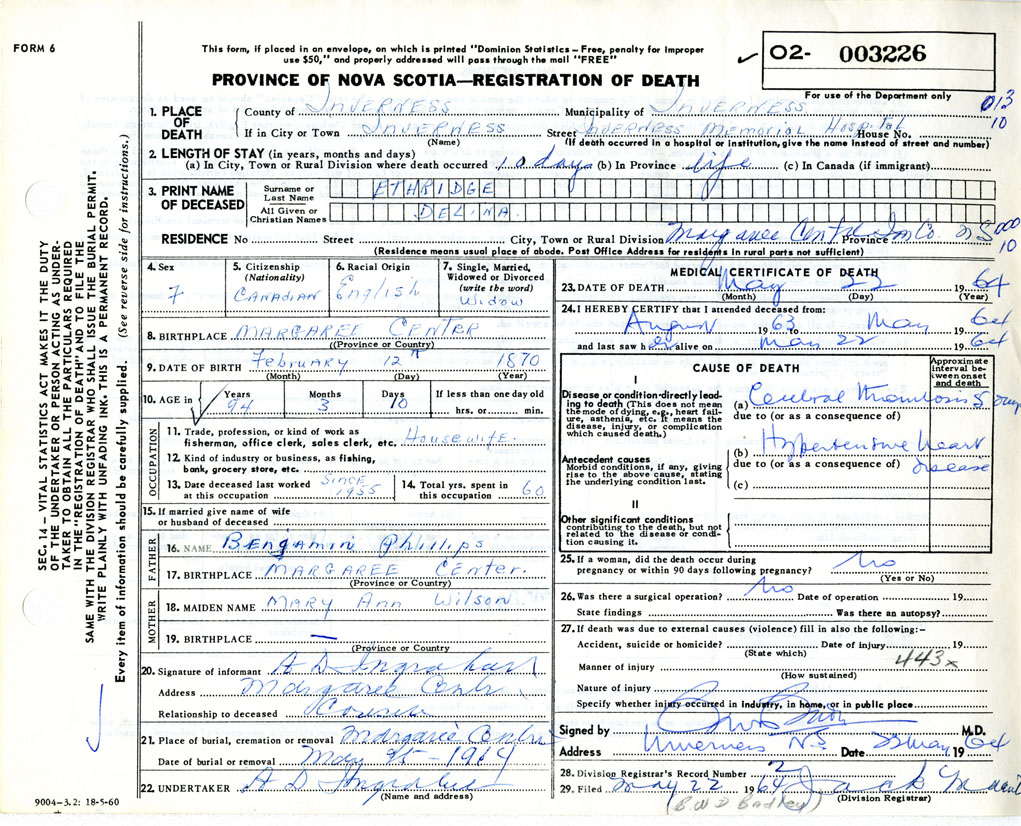 FORM 6
This form, if placed in an envelope, on which is printed "Dominion Statistics – Free, penalty for improper
use $50," and properly addressed will pass through the mail "FREE"
PROVINCE OF NOVA SCOTIA—REGISTRATION OF DEATH
02- 003226
For use of the Department only
013
10
SEC. 14 – VITAL STATISTICS ACT MAKES IT THE DUTY
OF THE UNDERTAKER OR PERSON ACTING AS UNDER-
TAKER TO OBTAIN ALL THE PARTICULARS REQUIRED
IN THE "REGISTRATION OF DEATH" AND TO FILE THE
SAME WITH THE DIVISION REGISTRAR WHO SHALL ISSUE THE BURIAL PERMIT.
WRITE PLAINLY WITH UNFADING INK. THIS IS A PERMANENT RECORD.
Every item of information should be carefully supplied. (See reverse side for instructions.)
1. PLACE OF DEATH
County of INVERNESS Municipality of INVERNESS
If in City or Town INVERNESS Street INVERNESS MEMORIAL HOSPITAL House No.
(Name) (If death occurred in a hospital or institution, give the name instead of street and number)
2. LENGTH OF STAY (in years, months and days)
(a) In City, Town or Rural Division where death occurred 10 days (b) In Province life (c) In Canada (if immigrant)
3. PRINT NAME OF DECEASED
Surname or Last Name ETHRIDGE
All Given or Christian Names DELINA
RESIDENCE No Street City, Town or Rural Division Margaree Centre Inv Co. Province N S
000
10
(Residence means usual place of abode. Post Office Address for residents in rural parts not sufficient)
4. Sex F
5. Citizenship (Nationality) CANADIAN
6. Racial Origin English
7. Single, Married, Widowed or Divorced (write the word) Widow
8. BIRTHPLACE MARGAREE CENTER
(Province or Country)
9. DATE OF BIRTH February 12th 1870
(Month) (Day) (Year)
10. AGE in Years 94 Months 3 Days 10 If less than one day old hrs. or min.
OCCUPATION
11. Trade, profession, or kind of work as
fisherman, office clerk, sales clerk, etc. Housewife
12. Kind of industry or business, as fishing,
bank, grocery store, etc.
13. Date deceased last worked at this occupation SINCE 1955
14. Total yrs. spent in this occupation 60
15. If married give name of wife
or husband of deceased
FATHER
16. NAME Benjamin Phillips
17. BIRTHPLACE MARGAREE Center.
(Province or Country)
MOTHER
18. MAIDEN NAME MARY Ann Wilson
19. BIRTHPLACE —
(Province or Country)
20. Signature of informant A D Ingraham
Address Margaree Centre
Relationship to deceased Cousin
21. Place of burial, cremation or removal Margaree Centre
Date of burial or removal May 1964
22. UNDERTAKER A D Ingraham
(Name and address)
9004–3.2: 18-5-60
MEDICAL CERTIFICATE OF DEATH
23. DATE OF DEATH May 22 1964
(Month) (Day) (Year)
24. I HEREBY CERTIFY that I attended deceased from:
August 1963 to May 64
and last saw her alive on May 22 1964
CAUSE OF DEATH
Approximate interval between onset and death
I
Disease or condition directly lead-
ing to death (This does not mean
the mode of dying, e.g., heart fail-
ure, asthenia, etc. It means the
disease, injury, or complication
which caused death.)
(a) Cerebral Thrombosis 8 days
due to (or as a consequence of)
Antecedent causes
Morbid conditions, if any, giving
rise to the above cause, stating
the underlying condition last.
(b) Hypertensive heart disease
due to (or as a consequence of)
(c)
II
Other significant conditions
contributing to the death, but not
related to the disease or condi-
tion causing it.
25. If a woman, did the death occur during
pregnancy or within 90 days following pregnancy? No
(Yes or No)
26. Was there a surgical operation? No Date of operation 19
State findings Was there an autopsy?
27. If death was due to external causes (violence) fill in also the following:–
Accident, suicide or homicide? Date of injury 19
(State which)
443x
Manner of injury
(How sustained)
Nature of injury
Specify whether injury occurred in Industry, in home, or in public place
Signed by M.D.
Address Inverness N.S Date 23 May 1964
28. Division Registrar's Record Number 2
29. Filed May 22 1964 Jack
(Division Registrar)